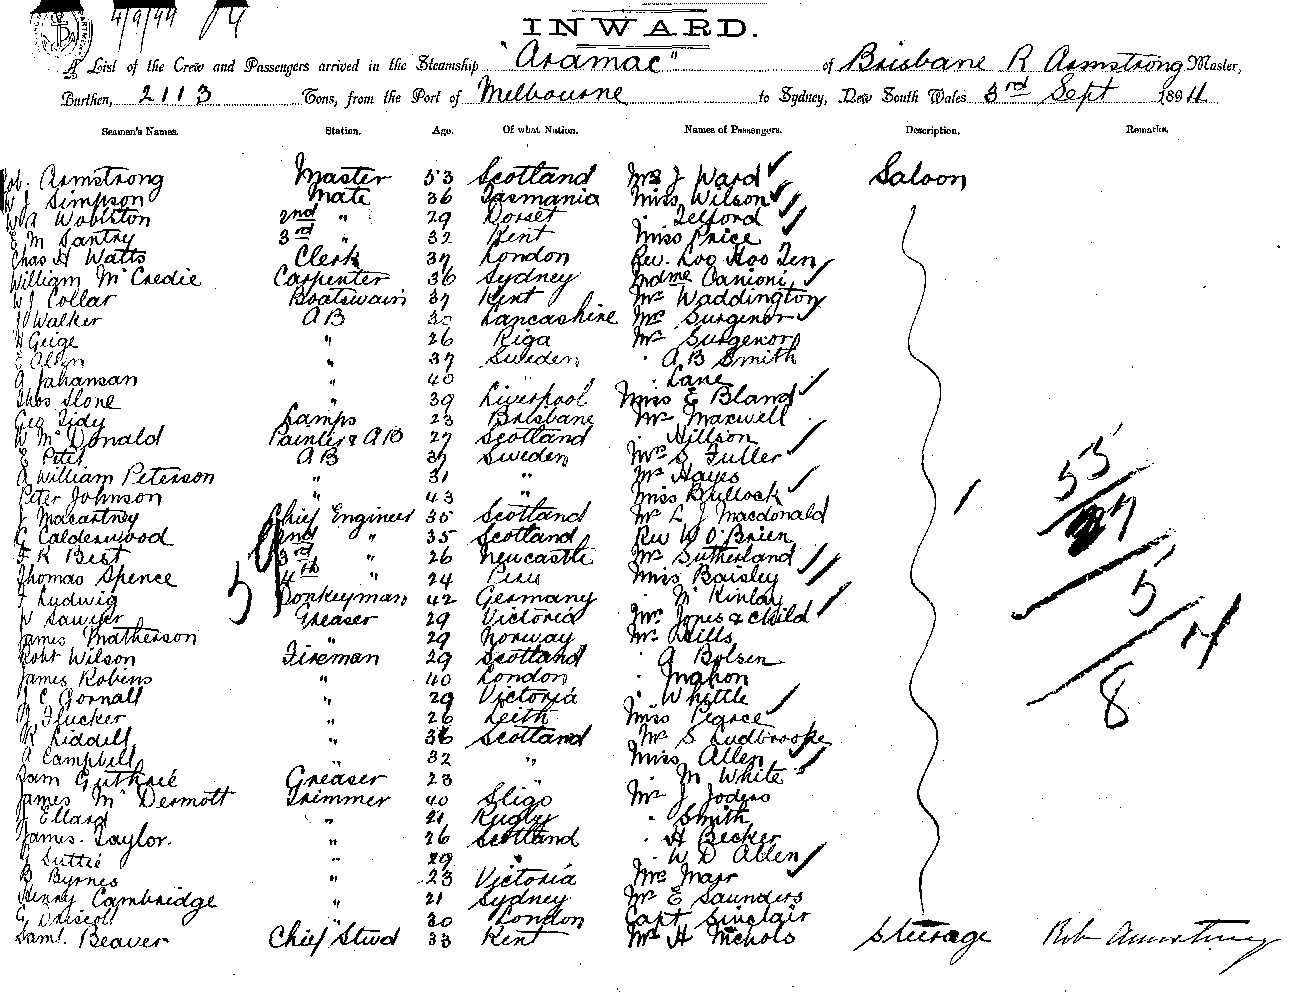 4/9/94
INWARD.
A List of the Crew and Passengers arrived in the Steamship "Aramac" of Brisbane R Armstrong Master,
Burthen, 2113 Tons, from the Port of Melbourne to Sydney, New South Wales 3rd Sept 1894
Seamen's Names. Station. Age. Of what Nation. Names of Passengers. Description. Remarks.
Rob. Armstrong Master 53 Scotland Mrs J Ward Saloon
W J Simpson Mate 36 Tasmania Miss Wilson
2nd " 29 Dorset " Telford
E M Santry 3rd " 32 Kent Miss Price
Chas H Watts Clerk 37 London Rev. Loo Hoo Ten
William McCredie Carpenter 36 Sydney Mdme
W J Collar Boatswain 37 Kent Mr Waddington
J Walker AB 30 Lancashire Mrs Surgenor
Geige " 26 Riga Mr Surgenor
E Allen " 37 Sweden " A B Smith
A Johansan " 40 " " Lane
Thos Slone " 39 Liverpool Miss E Bland
Geo Tidy Lamps 23 Brisbane Mr Maxwell
W McDonald Painter & AB 27 Scotland " Hillson
E Peter AB 37 Sweden Mrs S Fuller
A William Peterson " 31 " Mr Hayes
Peter Johnson " 43 " Miss Bullock
J Macartney Chief Engineer 35 Scotland Mr L J Macdonald
G Calderwood 2nd " 35 Scotland Rev W O'Brien
F R Best 3rd " 26 Newcastle Mrs Sutherland
Thomas Spence 4th " 24 Miss Baisley
F Ludwig Donkeyman 42 Germany " McKinlay
Sawyer Greaser 29 Victoria Mrs Jones & Child
James Matherson " 29 Norway Mr Mills
Robt Wilson Fireman 29 Scotland " A Bolsen
James Robins " 40 London " Mahon
J C Gornall " 29 Victoria " Whittle
Flucker " 26 Leith Miss Pearce
R Liddell " 36 Scotland Mr S Ludbrooke
A Campbell " 32 " Miss Allen
Sam Guthrie Greaser 23 " M White
James McDermott Trimmer 40 Sligo Mr J Joders
J Ellard " 21 Rugby " Smith
James Taylor " 26 Scotland " H Becker
J Suttie " 29 " " W D Allen
B Byrnes " 23 Victoria Mrs Marr
Henry Cambridge " 21 Sydney Mr E Saunders
G Driscoll " 30 London Capt Sinclair
Saml. Beaver Chief Stwd 33 Kent Mr H Nichols Steerage Rob Armstrong
59
55
5
8